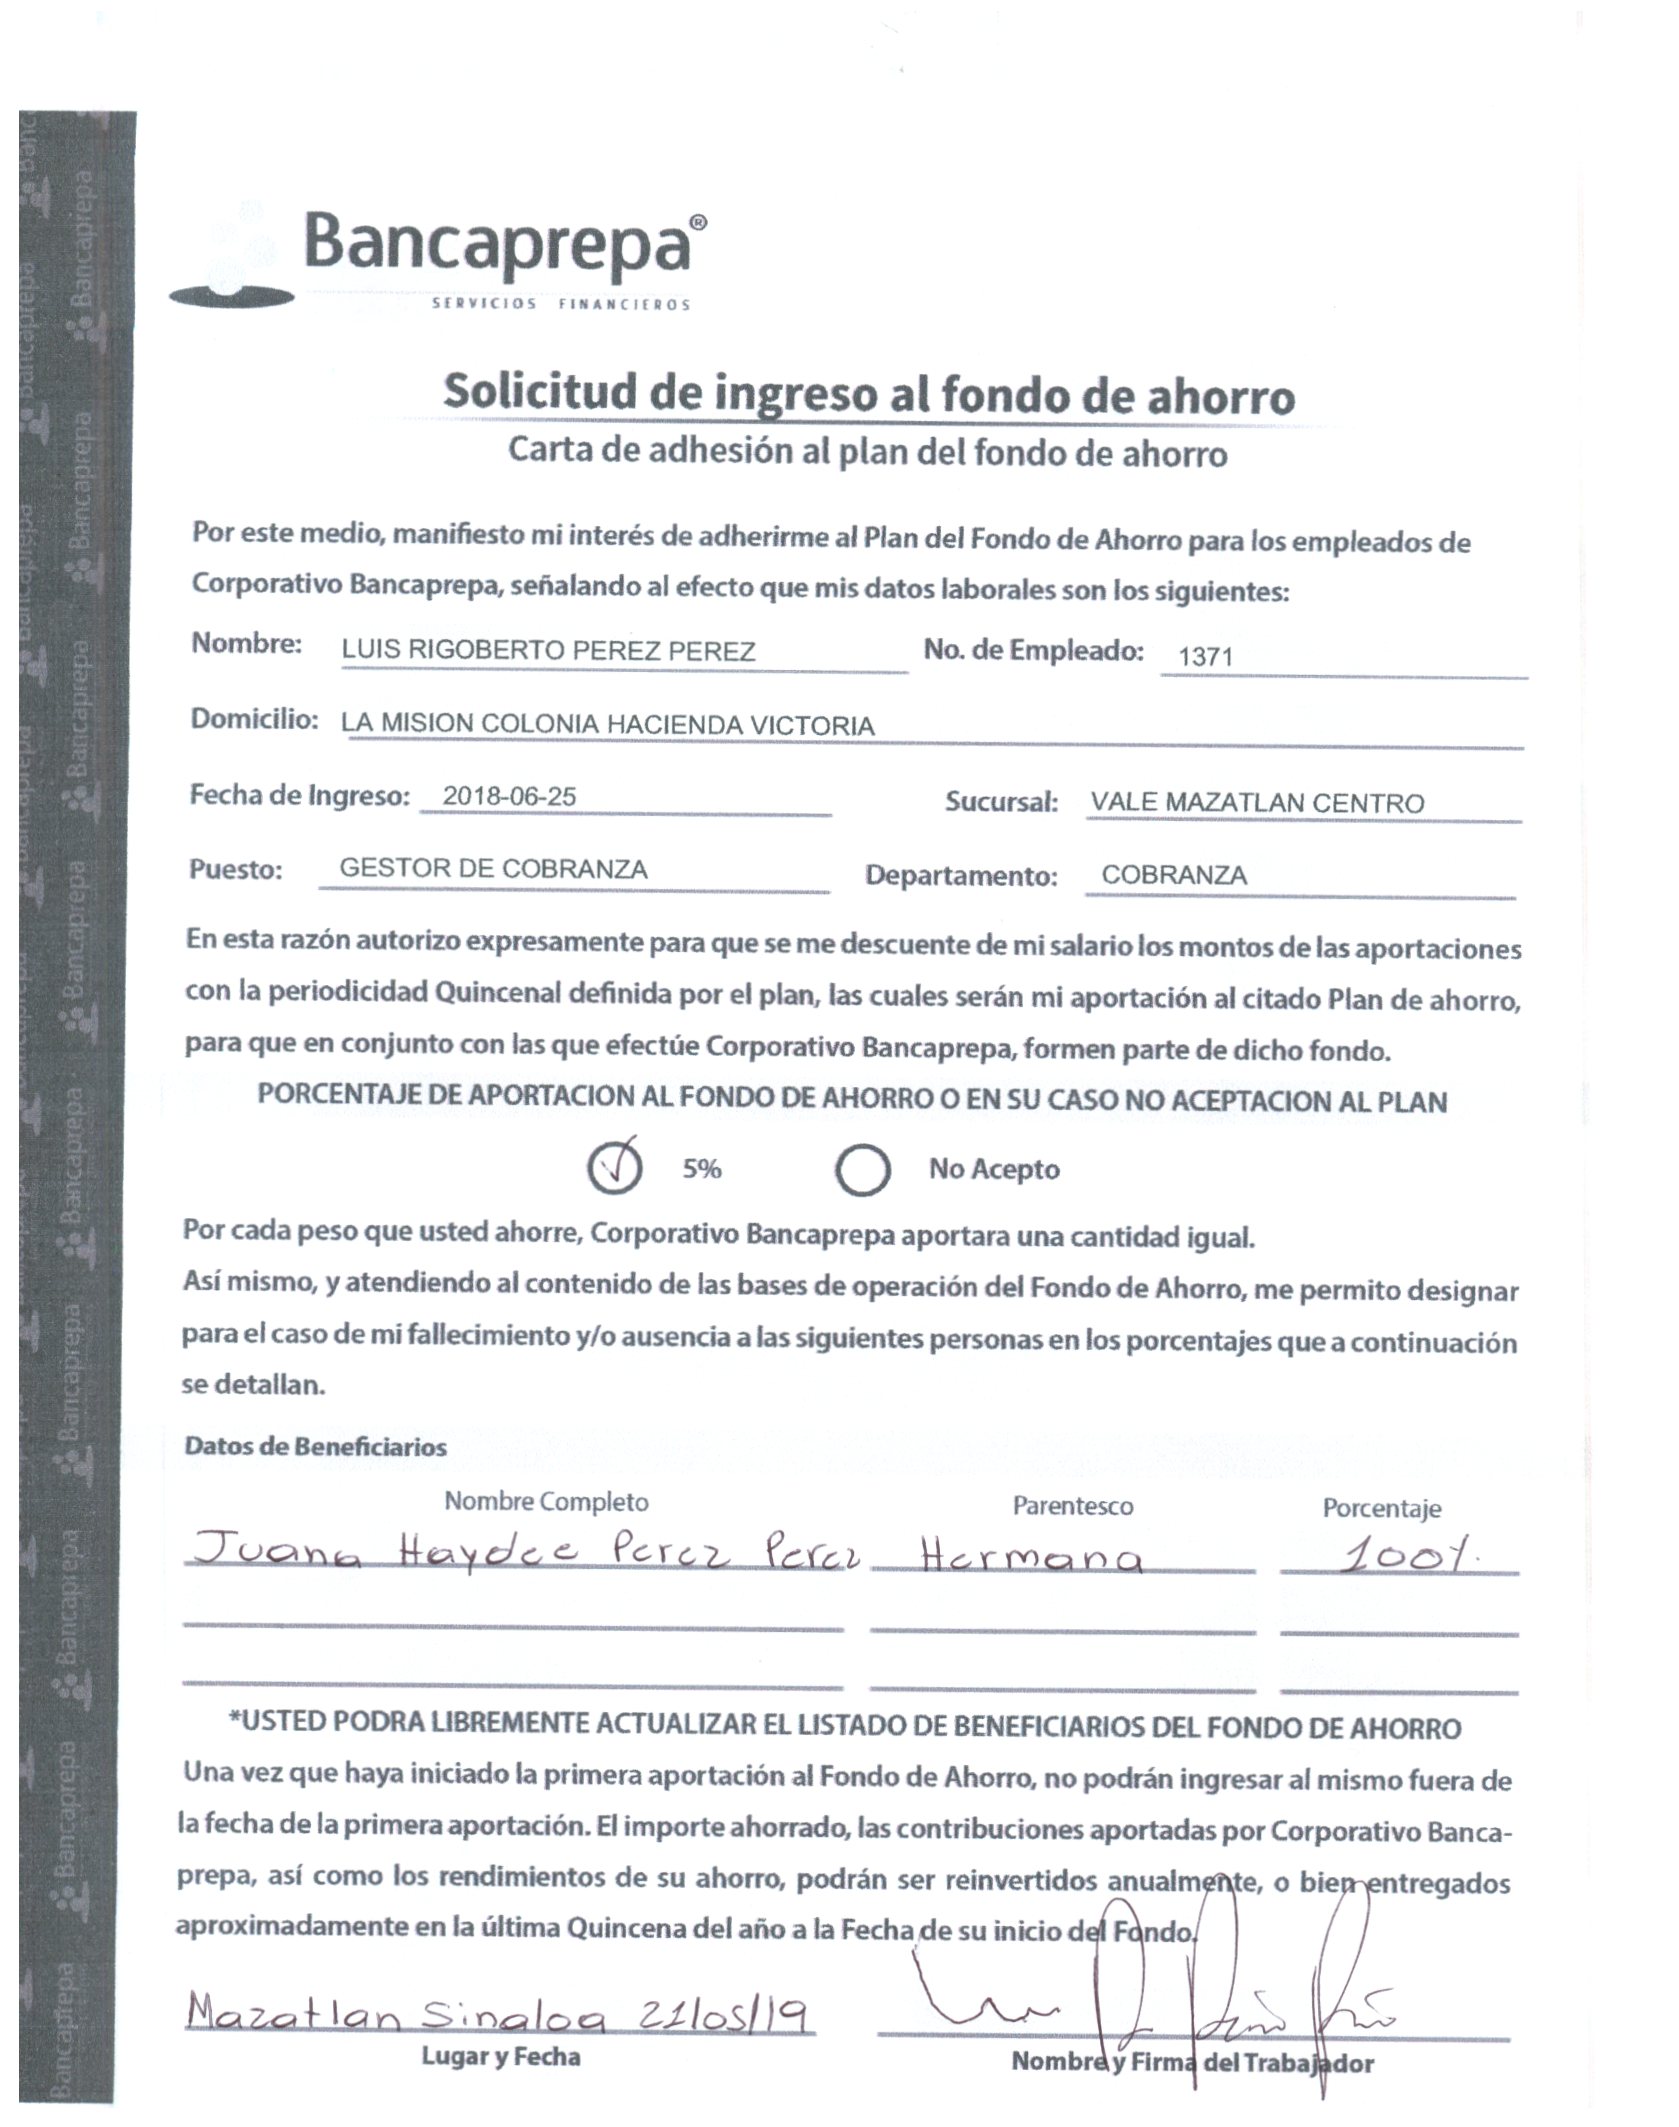 Bancaprepa®
SERVICIOS FINANCIEROS
Solicitud de ingreso al fondo de ahorro
Carta de adhesión al plan del fondo de ahorro
Por este medio, manifiesto mi interés de adherirme al Plan del Fondo de Ahorro para los empleados de
Corporativo Bancaprepa, señalando al efecto que mis datos laborales son los siguientes:
Nombre: LUIS RIGOBERTO PEREZ PEREZ No. de Empleado: 1371
Domicilio: LA MISION COLONIA HACIENDA VICTORIA
Fecha de Ingreso: 2018-06-25 Sucursal: VALE MAZATLAN CENTRO
Puesto: GESTOR DE COBRANZA Departamento: COBRANZA
En esta razón autorizo expresamente para que se me descuente de mi salario los montos de las aportaciones
con la periodicidad Quincenal definida por el plan, las cuales serán mi aportación al citado Plan de ahorro,
para que en conjunto con las que efectúe Corporativo Bancaprepa, formen parte de dicho fondo.
PORCENTAJE DE APORTACION AL FONDO DE AHORRO O EN SU CASO NO ACEPTACION AL PLAN
5% No Acepto
Por cada peso que usted ahorre, Corporativo Bancaprepa aportara una cantidad igual.
Así mismo, y atendiendo al contenido de las bases de operación del Fondo de Ahorro, me permito designar
para el caso de mi fallecimiento y/o ausencia a las siguientes personas en los porcentajes que a continuación
se detallan.
Datos de Beneficiarios
Nombre Completo Parentesco Porcentaje
Juana Haydee Perez Perez Hermana 100%
*USTED PODRA LIBREMENTE ACTUALIZAR EL LISTADO DE BENEFICIARIOS DEL FONDO DE AHORRO
Una vez que haya iniciado la primera aportación al Fondo de Ahorro, no podrán ingresar al mismo fuera de
la fecha de la primera aportación. El importe ahorrado, las contribuciones aportadas por Corporativo Banca-
prepa, así como los rendimientos de su ahorro, podrán ser reinvertidos anualmente, o bien entregados
aproximadamente en la última Quincena del año a la Fecha de su inicio del Fondo.
Mazatlan Sinaloa 21/05/19
Lugar y Fecha Nombre y Firma del Trabajador